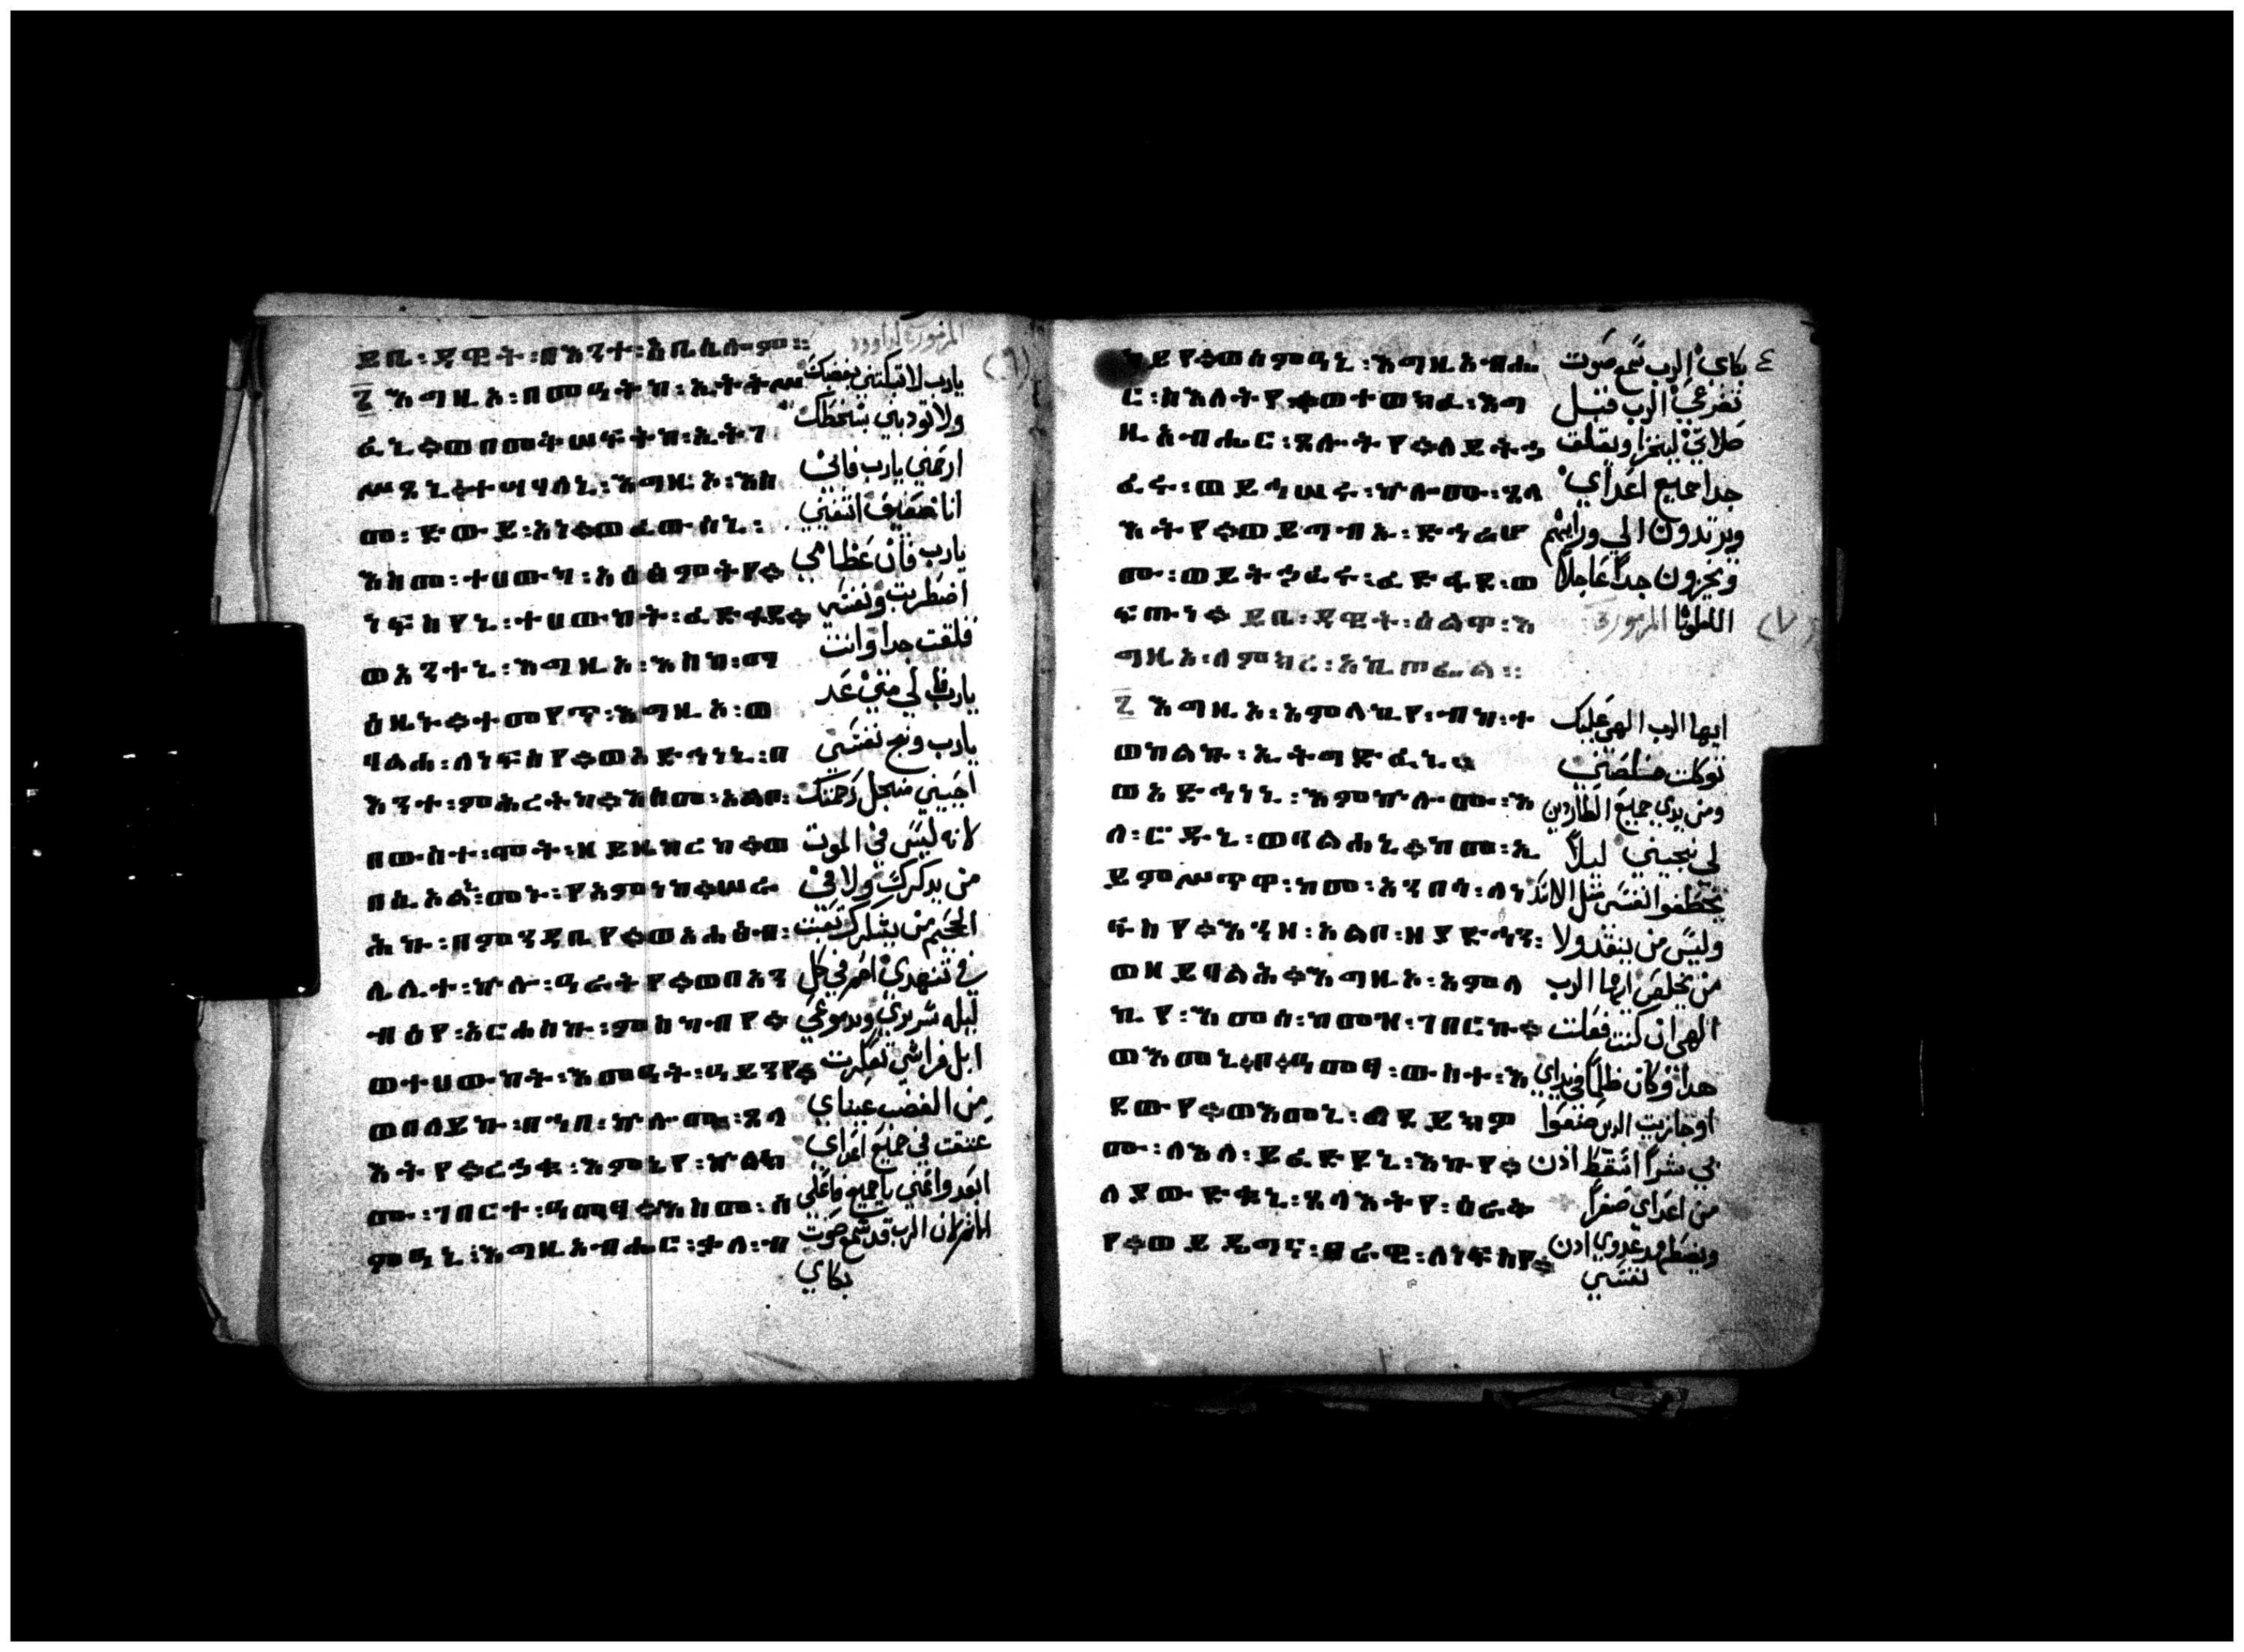 ይቤ፡ዳዊት፡በእንተ፡አቤሴሎም።
፪ እግዚኦ፡በመዓትከ፡ኢትቅሥ
ፈኒ።ወበመቅሠፍትከ፡ኢትገ
ሥጸኒ።ተሣሃለኒ፡እግዚኦ፡እስ
መ፡ድውይ፡አነ።ወፈውሰኒ፡
እስመ፡ተሀውካ፡አዕፅምትየ።
ነፍስየኒ፡ተሀውከት፡ፈድፋደ።
ወአንተኒ፡እግዚኦ፡እስከ፡ማ
ዕዜኑ።ተመየጥ፡እግዚኦ፡ወ
ባልሓ፡ለነፍስየ።ወአድኅነኒ፡በ
እንተ፡ምሕረትከ።እስመ፡አልቦ፡
በውስተ፡ሞት፡ዘይዜከረከ።ወ
በሲኦልኒ፡መኑ፡የአምነከ።ሠራ
ሕኩ፡በምንዳቤየ።ወአሐፅብ፡
ሌሊተ፡ኵሎ፡ዓራትየ።ወበአን
ብዕየ፡አርሐስኩ፡ምስካብየ።
ወተሀውከት፡እመዓት፡ዓይንየ።
ወበለይኩ፡በኀበ፡ኵሎሙ፡ጸላ
እትየ።ረኀቁ፡እምኔየ፡ኵልክ
ሙ፡ገበርተ፡ዓመፃ።እስመ፡ሰ
ምዓኒ፡እግዚአብሔር፡ቃለ፡ብ
(٦) المزمور لداوود
يارب لاتبكتني بغضبك
ولاتودبني بسخطك
ارحمني يارب فاني
انا ضعيف اشفيني
يارب فان عظامي
اضطربت ونفسي
قلقت جدا وانت
يارب الي متي عد
يارب ونج نفسي
احييني من اجل رحمتك
لانه ليس في الموت
من يدكرك ولا في
الجحيم من يشكرك تعبت
في تنهدي احمر في كل
ليله سريري وبدموعي
ابل فراشي تعكرت
من الغضب عيناي
عتقت في جميع اعداي
ابعدوا عني ياجميع فاعلي
الاثم لان الرب قد سمع صوت
بكاي
ካይየ።ወሰምዓኒ፡እግዚአብሔ
ር፡ስእለትየ።ወተወክፈ፡እግ
ዚአብሔር፡ጸሎትየ።ለይትኀ
ፈሩ፡ወይኅሠሩ፡ኵሎሙ፡ጸላ
እትየ።ወይግብኡ፡ድኅሬሆ
ሙ፡ወይትኀፈሩ፡ፈድፋደ፡ወ
ፍጡነ። ይቤ፡ዳዊት፡ዕልዋ፡እ
ግዚኦ፡ለምክረ፡አኪጦፌል።
፪ እግዚኦ፡አምላኪየ፡ብከ፡ተ
ወከልኩ፡ኢትግድፈኒ።
ወአድኅነኒ፡እምኵሎሙ፡እ
ለ፡ሮዱኒ፡ወባልሐኒ።ከመ፡ኢ
ይምሥጥዋ፡ከመ፡አንበሳ፡ለነ
ፍስየ።እንዘ፡አልቦ፡ዘያድኅን፡
ወዘይባልሕ።እግዚኦ፡አምላ
ኪየ፡እመሰ፡ከመዝ፡ገበርኩ።
ወእመኒ፡ቦ፡ዓመፃ፡ውስተ፡እ
ደውየ።ወእመኒ፡ፈደይክዎ
ሙ፡ለእለ፡ይፈድዩኒ፡እኩየ።
ለያውድቁኒ፡ጸላእትየ፡ዕራቅ
የ።ወይዴግና፡ፀራዊ፡ለነፍስየ።
٤ بكاي الرب سمع صوت
تضرعي الرب قبل
صلاتي ليخزا ويقلق
جدا جميع اعداي
ويرتدون الي ورايهم
ويخزون جدا عاجلا
(٧) المزمور
ايها الرب الهي عليك
توكلت خلصني
ومن يدي جميع الطاردين
لي نجيني ليلا
يخطفوا نفسي مثل الاسد
وليس من ينقد ولا
من يخلص ايها الرب
الهي ان كنت فعلت
هدا وكان ظلما في يداي
او جازيت الدين صنعوا
بي شرا اسقط ادن
من اعداي صفرا
ويضطهد عدوي ادن
نفسي